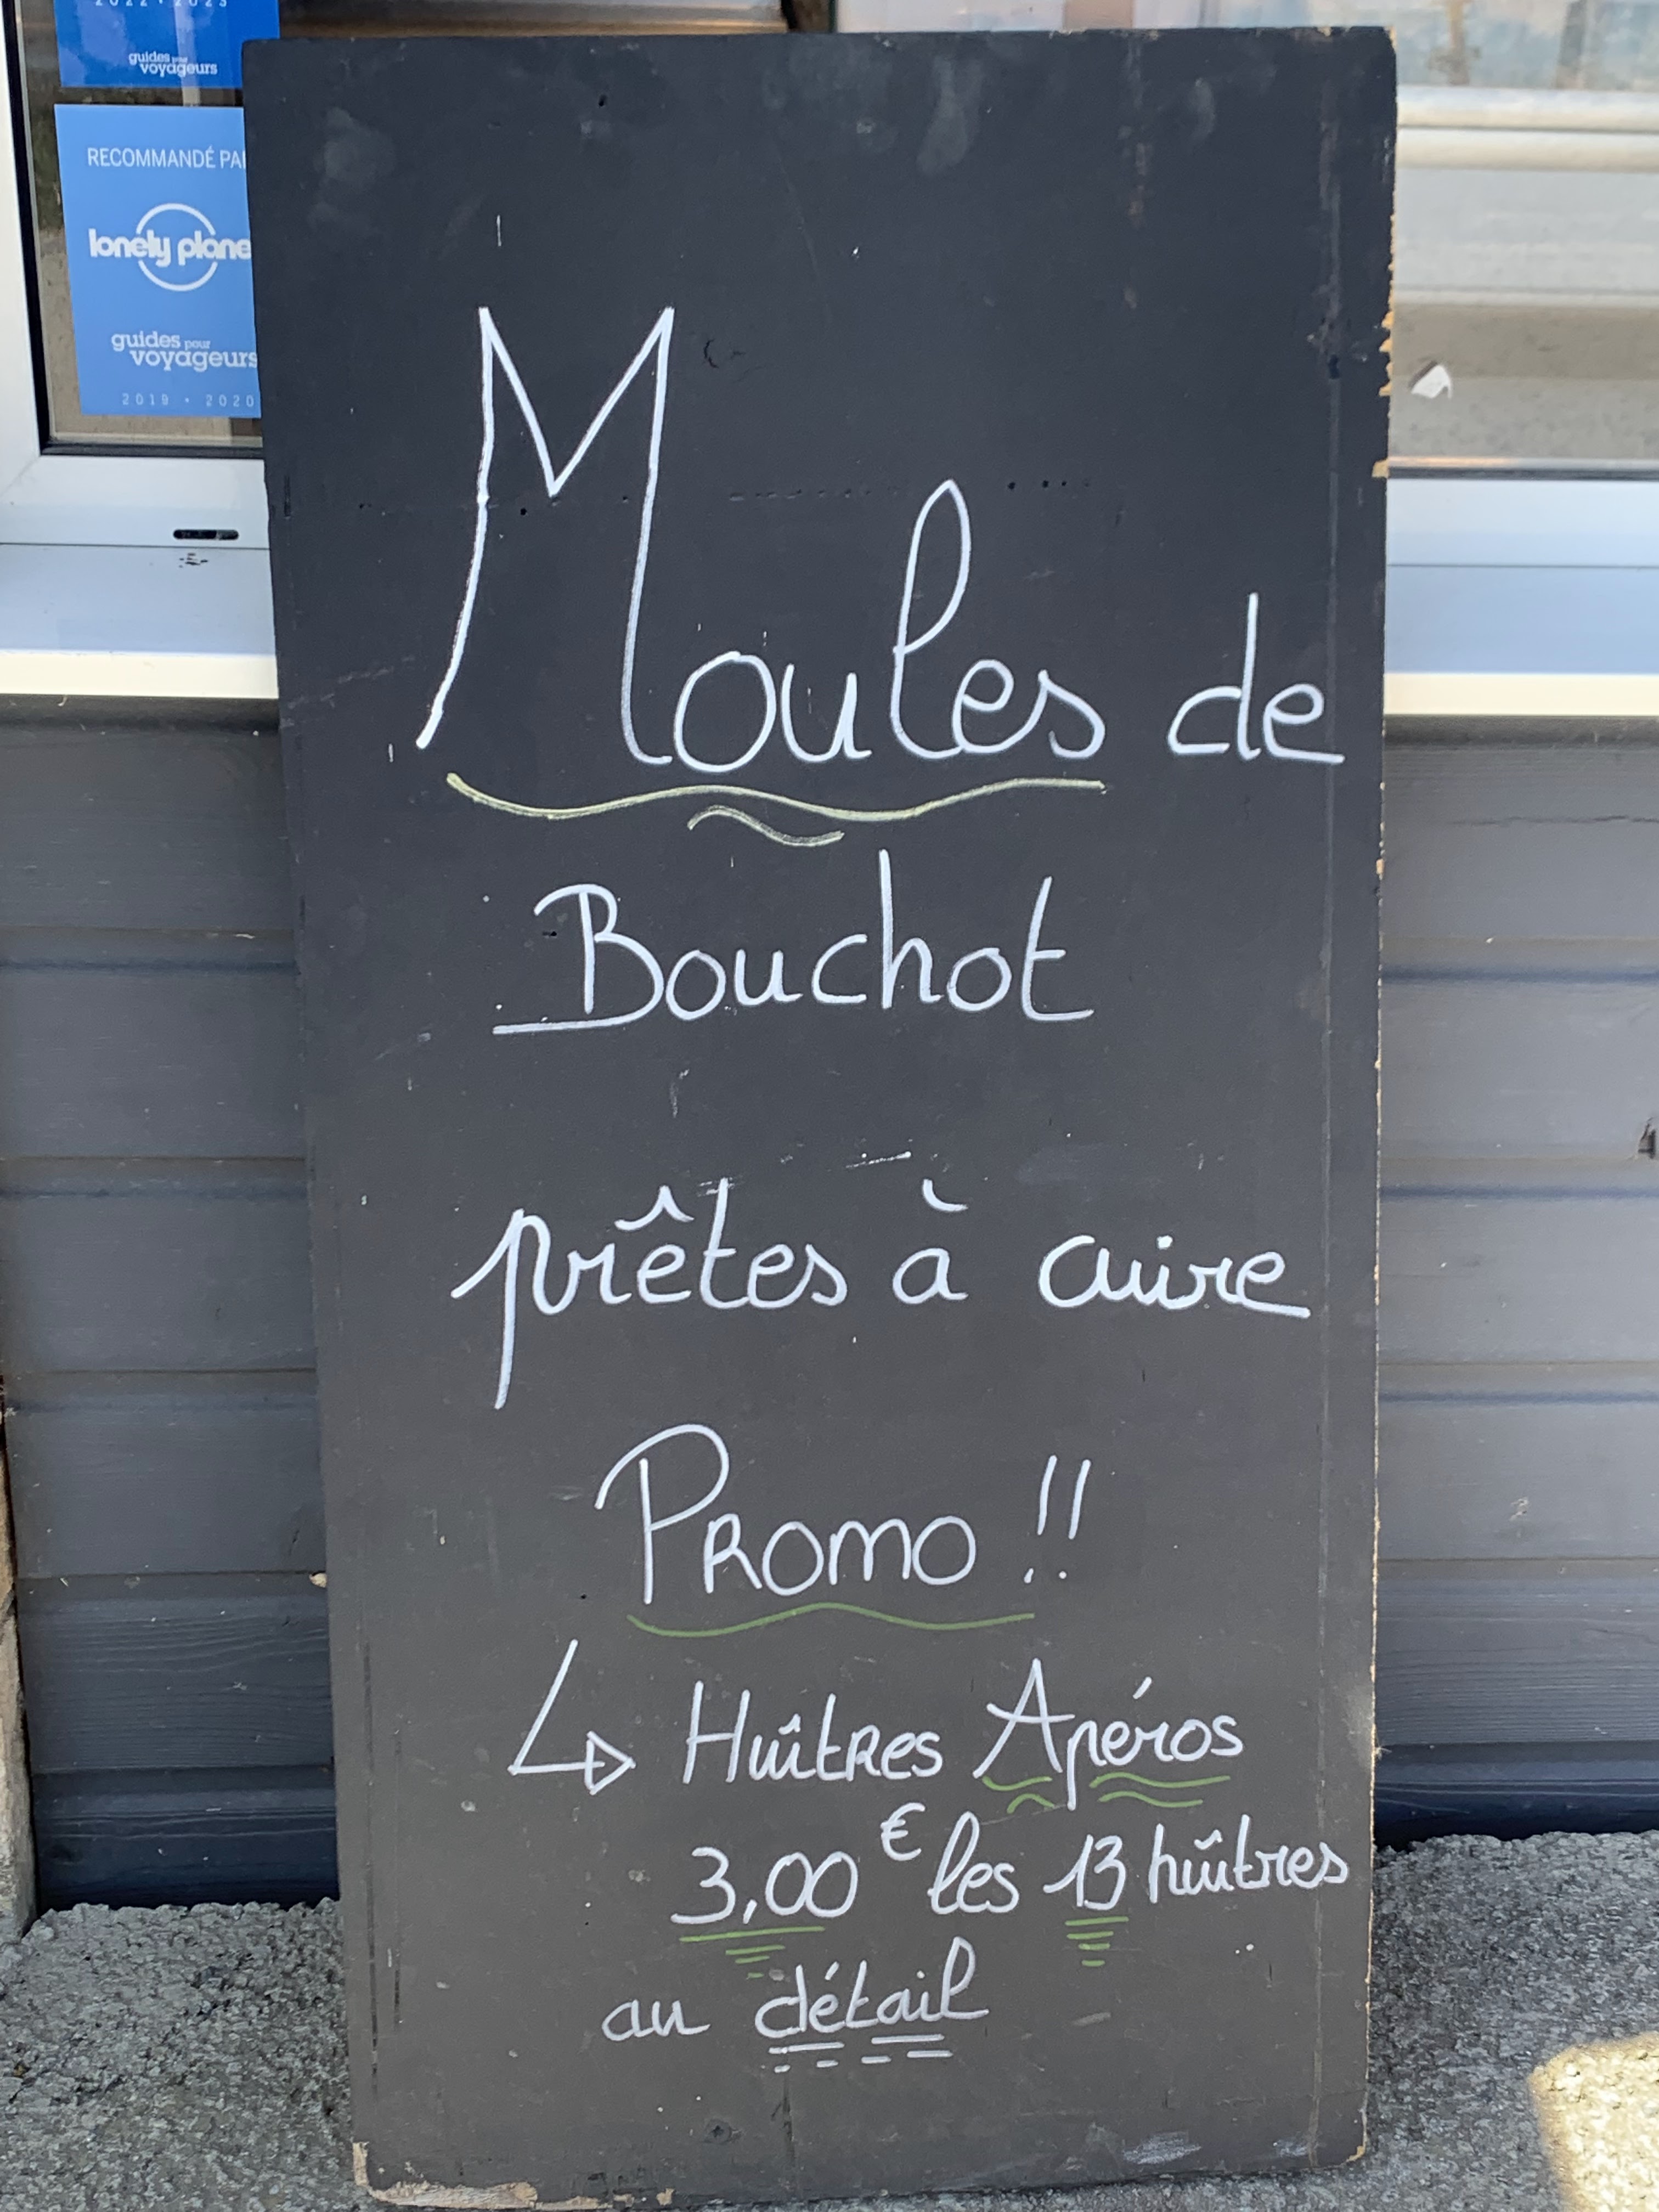 2022 • 2023
guides pour
voyageurs
RECOMMANDÉ PA
lonely plane
guides pour
voyageurs
2019 • 2020
Moules de
Bouchot
prêtes à cuire
PROMO !!
HuîtRes Apéros
3,00 € les 13 huîtres
au détail